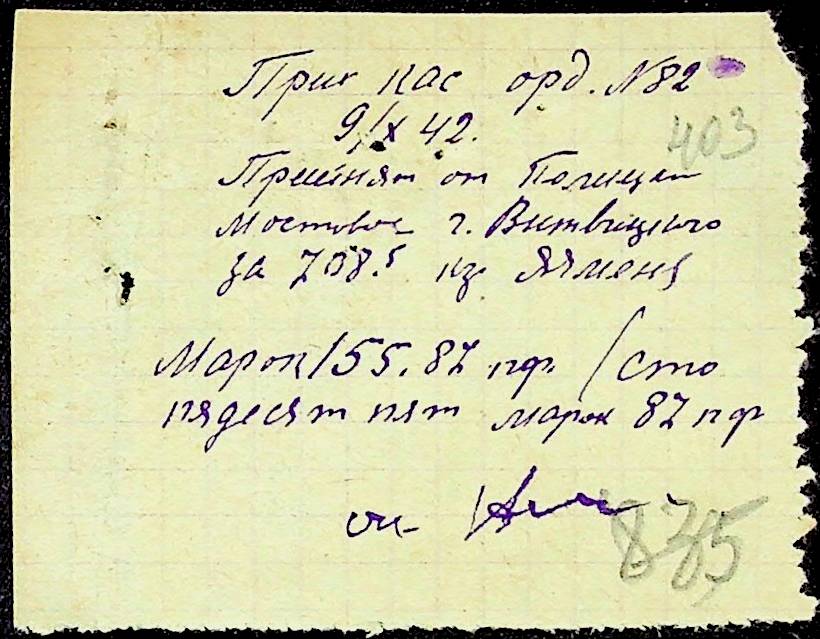 Прих кас орд. N 82
9/X 42.
403
Прийнят от Полиции
Мостовое г. Витвицкого
за 708.5 кг Ячменя
Марок 155.87 пф. (сто
пядесят пят марок 87 пф
835